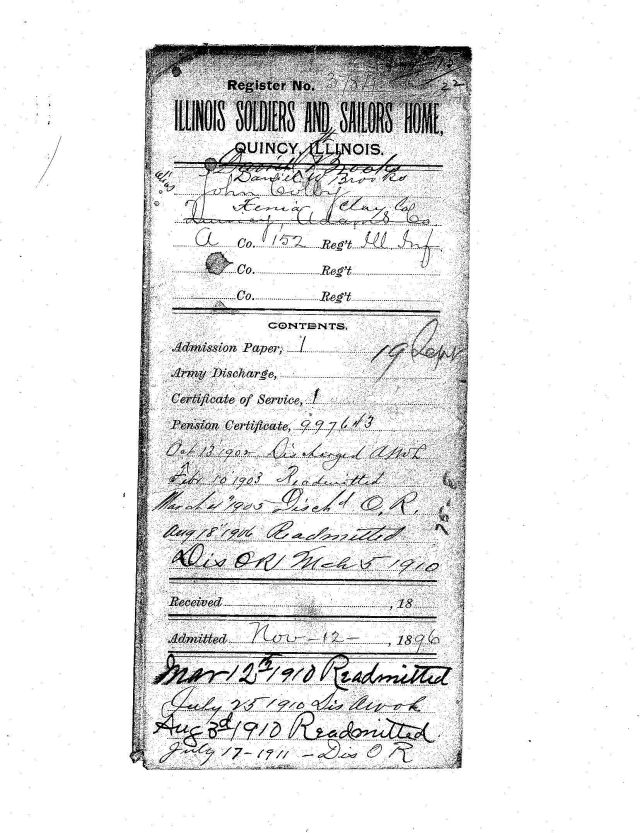 Register No.
22
ILLINOIS SOLDIERS AND SAILORS HOME,
QUINCY, ILLINOIS.
Daniel W Brooks
alias
John Colby
Xenia Clay Co
Adams Co
A Co. 152 Reg't Ill Inf
Co. Reg't
Co. Reg't
CONTENTS.
Admission Paper, 1
19
Army Discharge,
Certificate of Service, 1
Pension Certificate, 997643
Oct 13 1902 Discharged AWL
Feby 10 1903 Readmitted
March 4" 1905 Disch'd O.R.
Aug 18" 1906 Readmitted
Dis OR Mch 5 1910
Received , 18
Admitted Nov - 12 - , 1896
Mar 12th 1910 Readmitted
July 25 1910 Dis
Aug 3d 1910 Readmitted
July 17 - 1911 - Dis O R